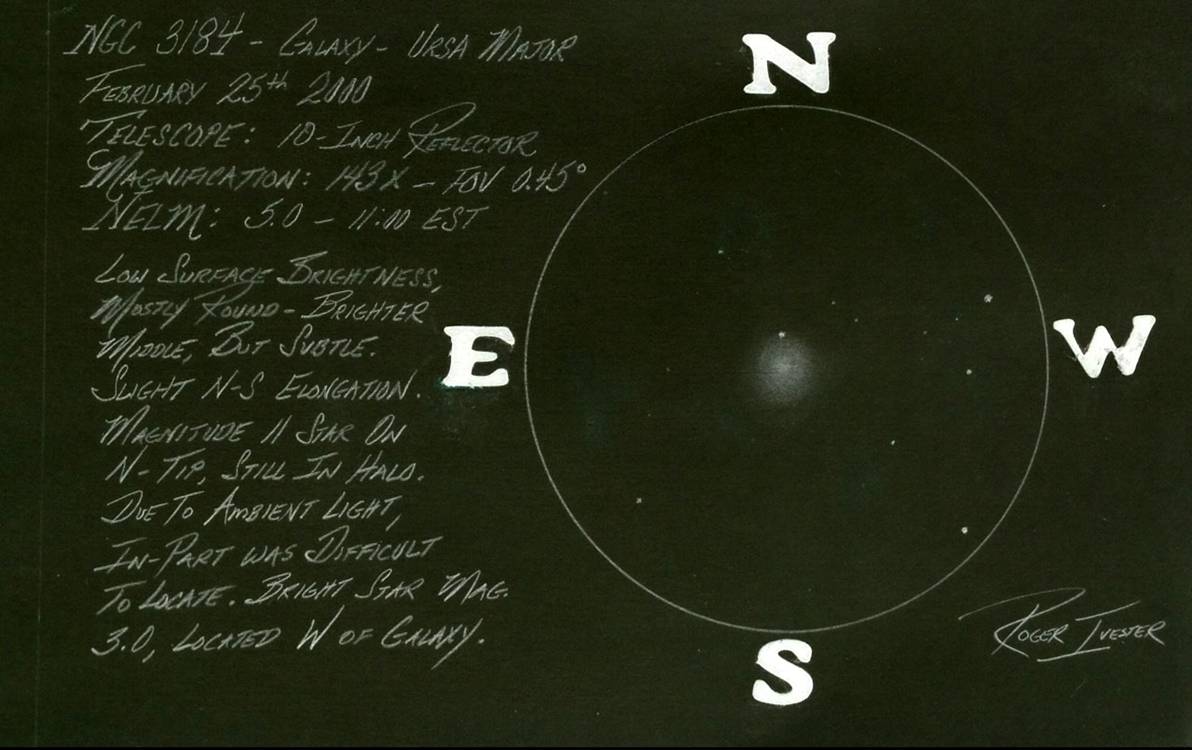 NGC 3184 - GALAXY - URSA MAJOR
FEBRUARY 25th 2000
TELESCOPE: 10-INCH REFLECTOR
MAGNIFICATION: 143X - FOV 0.45°
NELM: 5.0 - 11:00 EST
LOW SURFACE BRIGHTNESS,
MOSTLY ROUND - BRIGHTER
MIDDLE, BUT SUBTLE.
SLIGHT N-S ELONGATION.
MAGNITUDE 11 STAR ON
N-TIP, STILL IN HALO.
DUE TO AMBIENT LIGHT,
IN-PART WAS DIFFICULT
TO LOCATE. BRIGHT STAR MAG.
3.0, LOCATED W OF GALAXY.
N
E
W
S
ROGER IVESTER